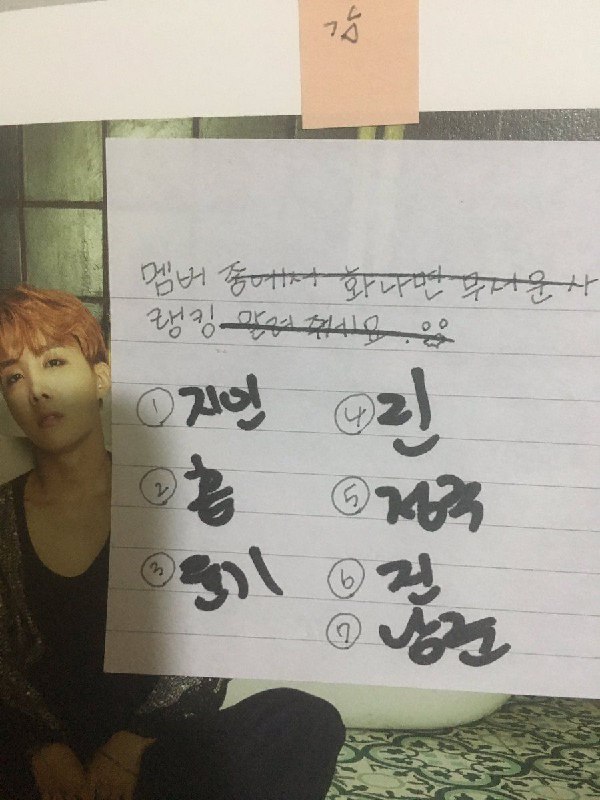 감
멤버 중에서 화나면 무서운 사
랭킹 알려 주세요.
① 지민 ④
② 홉 ⑤ 정국
③ 윤기 ⑥ 진
⑦ 남준